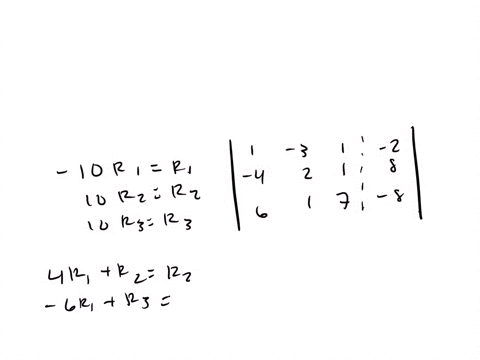 -10R₁ = R₁
10R₂ = R₂
10R₃ = R₃
1 -3 1 -2
-4 2 1 8
6 1 7 -8
4R₁ + R₂ = R₂
-6R₁ + R₃ =